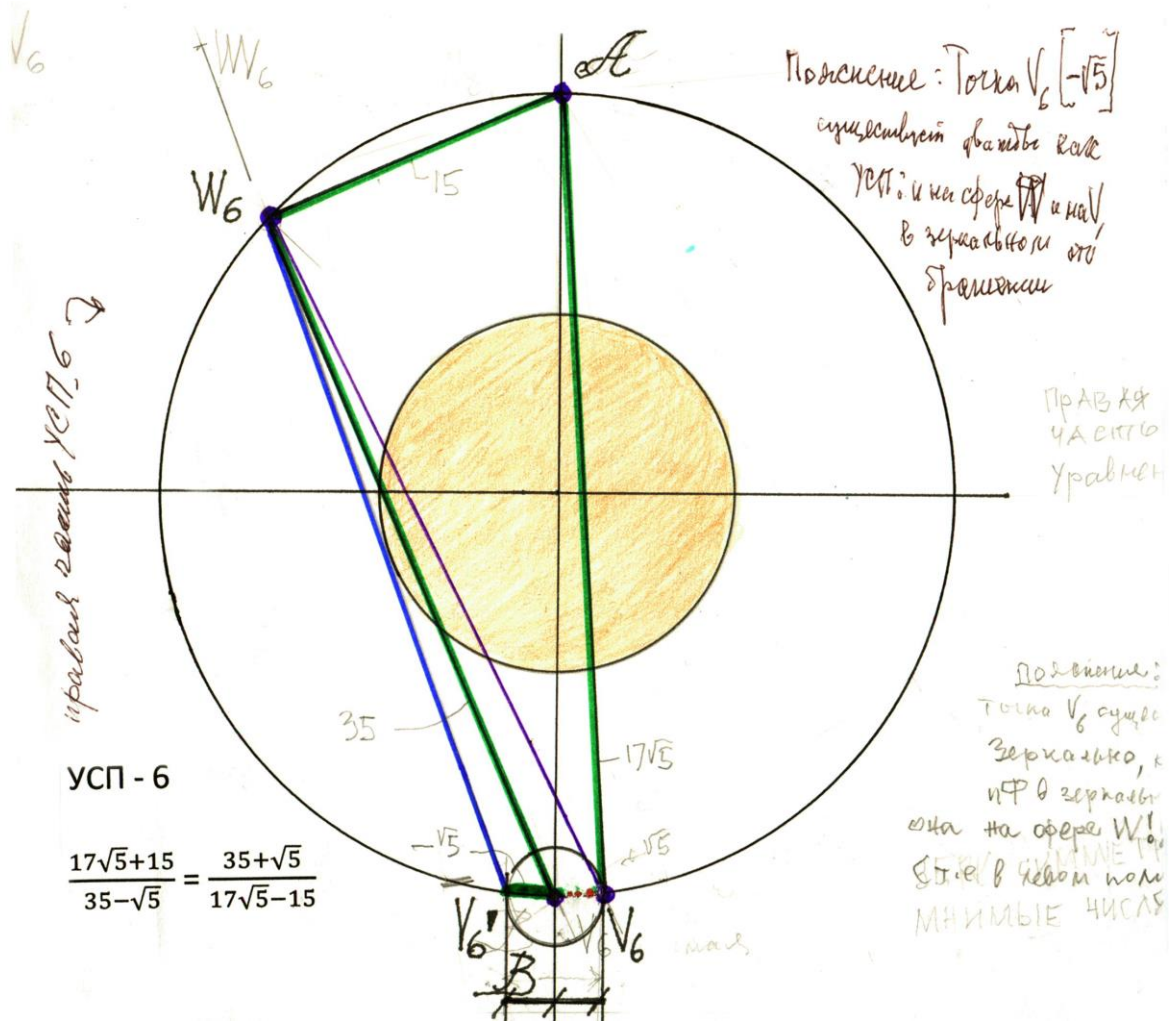 V₆
W₆
A
Пояснение: Точка V₆ [-√5]
существует дважды как
УСП: и на сфере W и на V,
в зеркальном ото
бражении
W₆
15
правая часть УСП_6
ПРАВАЯ
ЧАСТЬ
Уравнен
35
17√5
Пояснение:
Точка V₆ сущес
Зеркально, к
она на сфере W!
в левом
МНИМЫЕ ЧИСЛ
УСП - 6
(17√5+15)/(35−√5) = (35+√5)/(17√5−15)
-√5
√5
V₆'
V₆
V₆
B